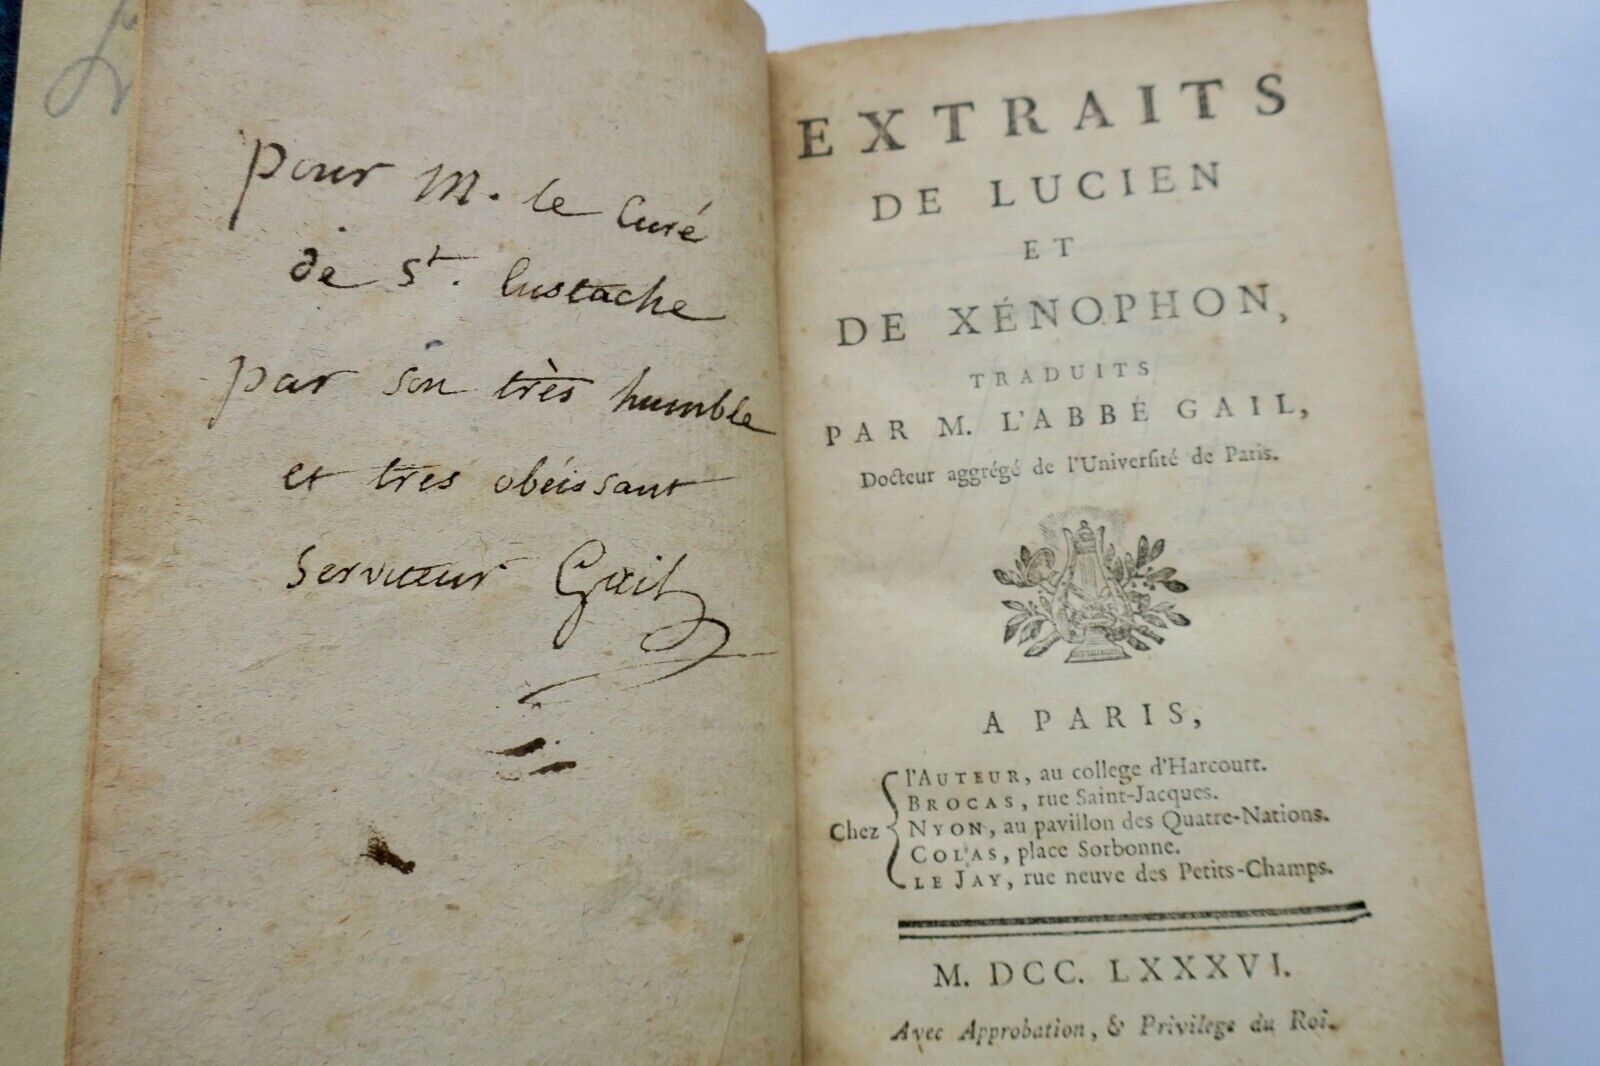 pour M. le Curé
de St. Eustache
par son très humble
et tres obéissant
serviteur Gail
EXTRAITS
DE LUCIEN
ET
DE XÉNOPHON,
TRADUITS
PAR M. L'ABBÉ GAIL,
Docteur aggrégé de l'Université de Paris.
A PARIS,
Chez
l'AUTEUR, au college d'Harcourt.
BROCAS, rue Saint-Jacques.
NYON, au pavillon des Quatre-Nations.
COLAS, place Sorbonne.
LE JAY, rue neuve des Petits-Champs.
M. DCC. LXXXVI.
Avec Approbation, & Privilege du Roi.